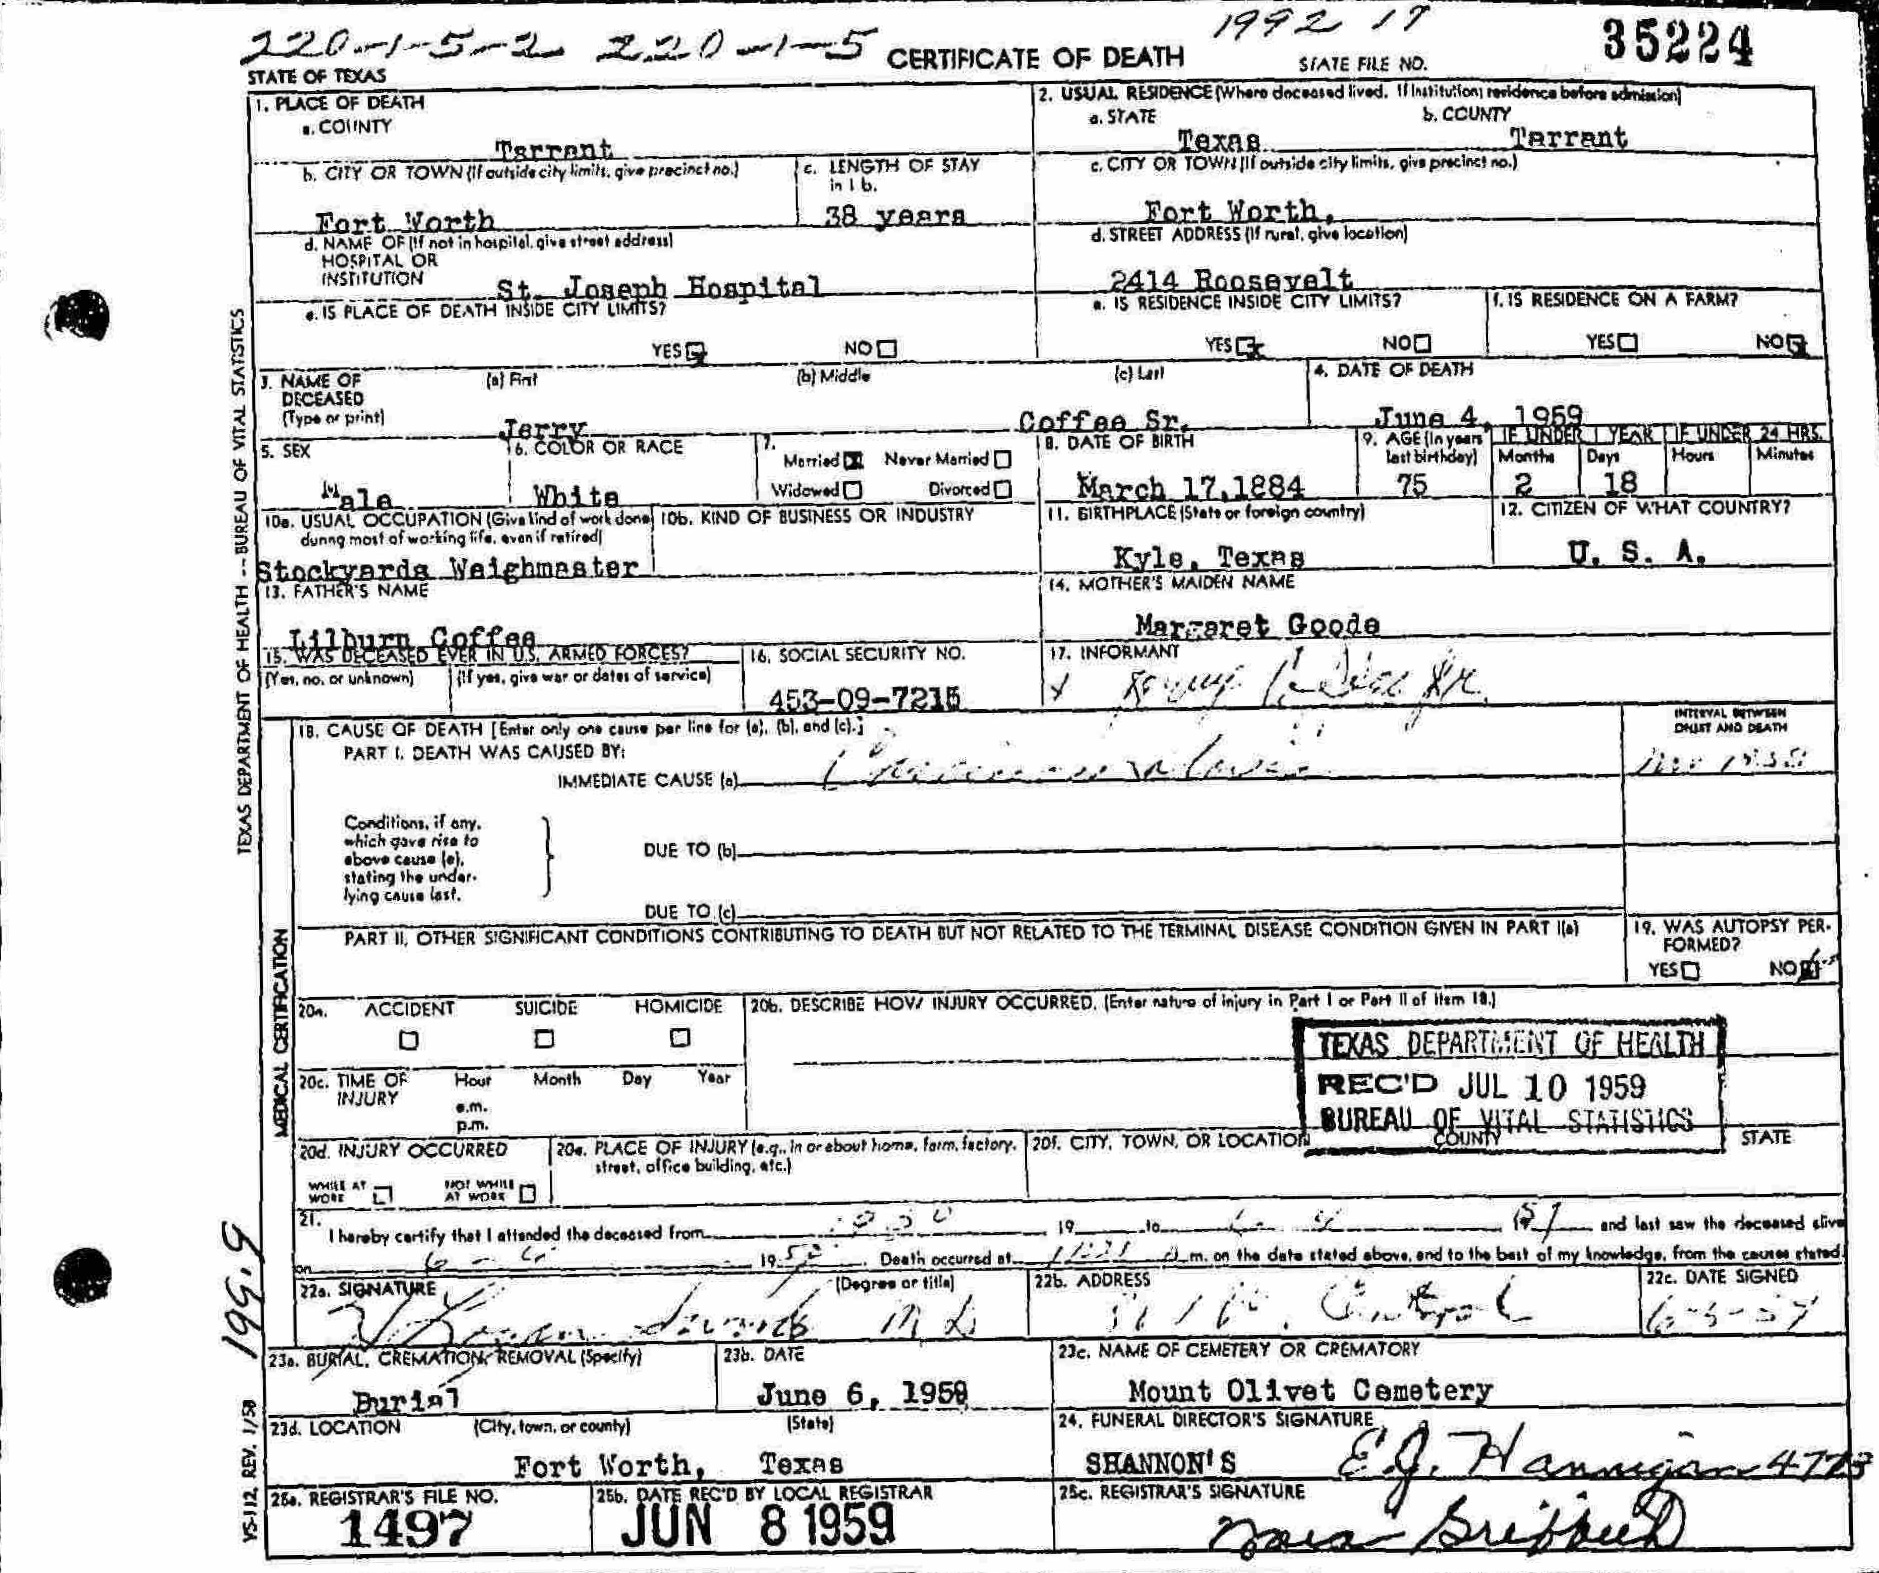 220-1-5-2 220-1-5 CERTIFICATE OF DEATH 1992 17 35224
STATE OF TEXAS STATE FILE NO.
1. PLACE OF DEATH
a. COUNTY
Tarrant
2. USUAL RESIDENCE (Where deceased lived. If Institution: residence before admission)
a. STATE b. COUNTY
Texas Tarrant
b. CITY OR TOWN (If outside city limits, give precinct no.)
Fort Worth
c. LENGTH OF STAY
in 1 b.
38 years
c. CITY OR TOWN (If outside city limits, give precinct no.)
Fort Worth,
d. NAME OF (If not in hospital, give street address)
HOSPITAL OR
INSTITUTION
St. Joseph Hospital
d. STREET ADDRESS (If rural, give location)
2414 Roosevelt
e. IS PLACE OF DEATH INSIDE CITY LIMITS?
YES NO
e. IS RESIDENCE INSIDE CITY LIMITS?
YES NO
f. IS RESIDENCE ON A FARM?
YES NO
3. NAME OF
DECEASED
(Type or print)
(a) First (b) Middle (c) Last
Jerry Coffee Sr.
4. DATE OF DEATH
June 4, 1959
5. SEX
Male
6. COLOR OR RACE
White
7.
Married Never Married
Widowed Divorced
8. DATE OF BIRTH
March 17, 1884
9. AGE (In years
last birthday)
75
IF UNDER 1 YEAR IF UNDER 24 HRS.
Months Days Hours Minutes
2 18
10a. USUAL OCCUPATION (Give kind of work done
during most of working life, even if retired)
Stockyards Weighmaster
10b. KIND OF BUSINESS OR INDUSTRY
11. BIRTHPLACE (State or foreign country)
Kyle, Texas
12. CITIZEN OF WHAT COUNTRY?
U. S. A.
13. FATHER'S NAME
Lilburn Coffee
14. MOTHER'S MAIDEN NAME
Margaret Goode
15. WAS DECEASED EVER IN U.S. ARMED FORCES?
(Yes, no, or unknown) (If yes, give war or dates of service)
16. SOCIAL SECURITY NO.
453-09-7215
17. INFORMANT
x
18. CAUSE OF DEATH [Enter only one cause per line for (a), (b), and (c).]
PART I. DEATH WAS CAUSED BY:
IMMEDIATE CAUSE (a)
INTERVAL BETWEEN
ONSET AND DEATH
Conditions, if any,
which gave rise to
above cause (a),
stating the under-
lying cause last.
DUE TO (b)
DUE TO (c)
PART II. OTHER SIGNIFICANT CONDITIONS CONTRIBUTING TO DEATH BUT NOT RELATED TO THE TERMINAL DISEASE CONDITION GIVEN IN PART I(a)
19. WAS AUTOPSY PER-
FORMED?
YES NO
20a. ACCIDENT SUICIDE HOMICIDE
20b. DESCRIBE HOW INJURY OCCURRED. (Enter nature of injury in Part I or Part II of Item 18.)
TEXAS DEPARTMENT OF HEALTH
REC'D JUL 10 1959
BUREAU OF VITAL STATISTICS
20c. TIME OF
INJURY
Hour Month Day Year
a.m.
p.m.
20d. INJURY OCCURRED
WHILE AT
WORK
NOT WHILE
AT WORK
20e. PLACE OF INJURY (e.g., in or about home, farm, factory,
street, office building, etc.)
20f. CITY, TOWN, OR LOCATION COUNTY STATE
21.
I hereby certify that I attended the deceased from 19 to and last saw the deceased alive
on 19 Death occurred at m. on the date stated above, and to the best of my knowledge, from the causes stated.
22a. SIGNATURE (Degree or title)
M D
22b. ADDRESS
22c. DATE SIGNED
23a. BURIAL, CREMATION, REMOVAL (Specify)
Burial
23b. DATE
June 6, 1959
23c. NAME OF CEMETERY OR CREMATORY
Mount Olivet Cemetery
23d. LOCATION (City, town, or county) (State)
Fort Worth, Texas
24. FUNERAL DIRECTOR'S SIGNATURE
SHANNON'S E.J. Hannigan 4773
25a. REGISTRAR'S FILE NO.
1497
25b. DATE REC'D BY LOCAL REGISTRAR
JUN 8 1959
25c. REGISTRAR'S SIGNATURE
TEXAS DEPARTMENT OF HEALTH -- BUREAU OF VITAL STATISTICS
MEDICAL CERTIFICATION
199.9
VS-112 REV. 1/58